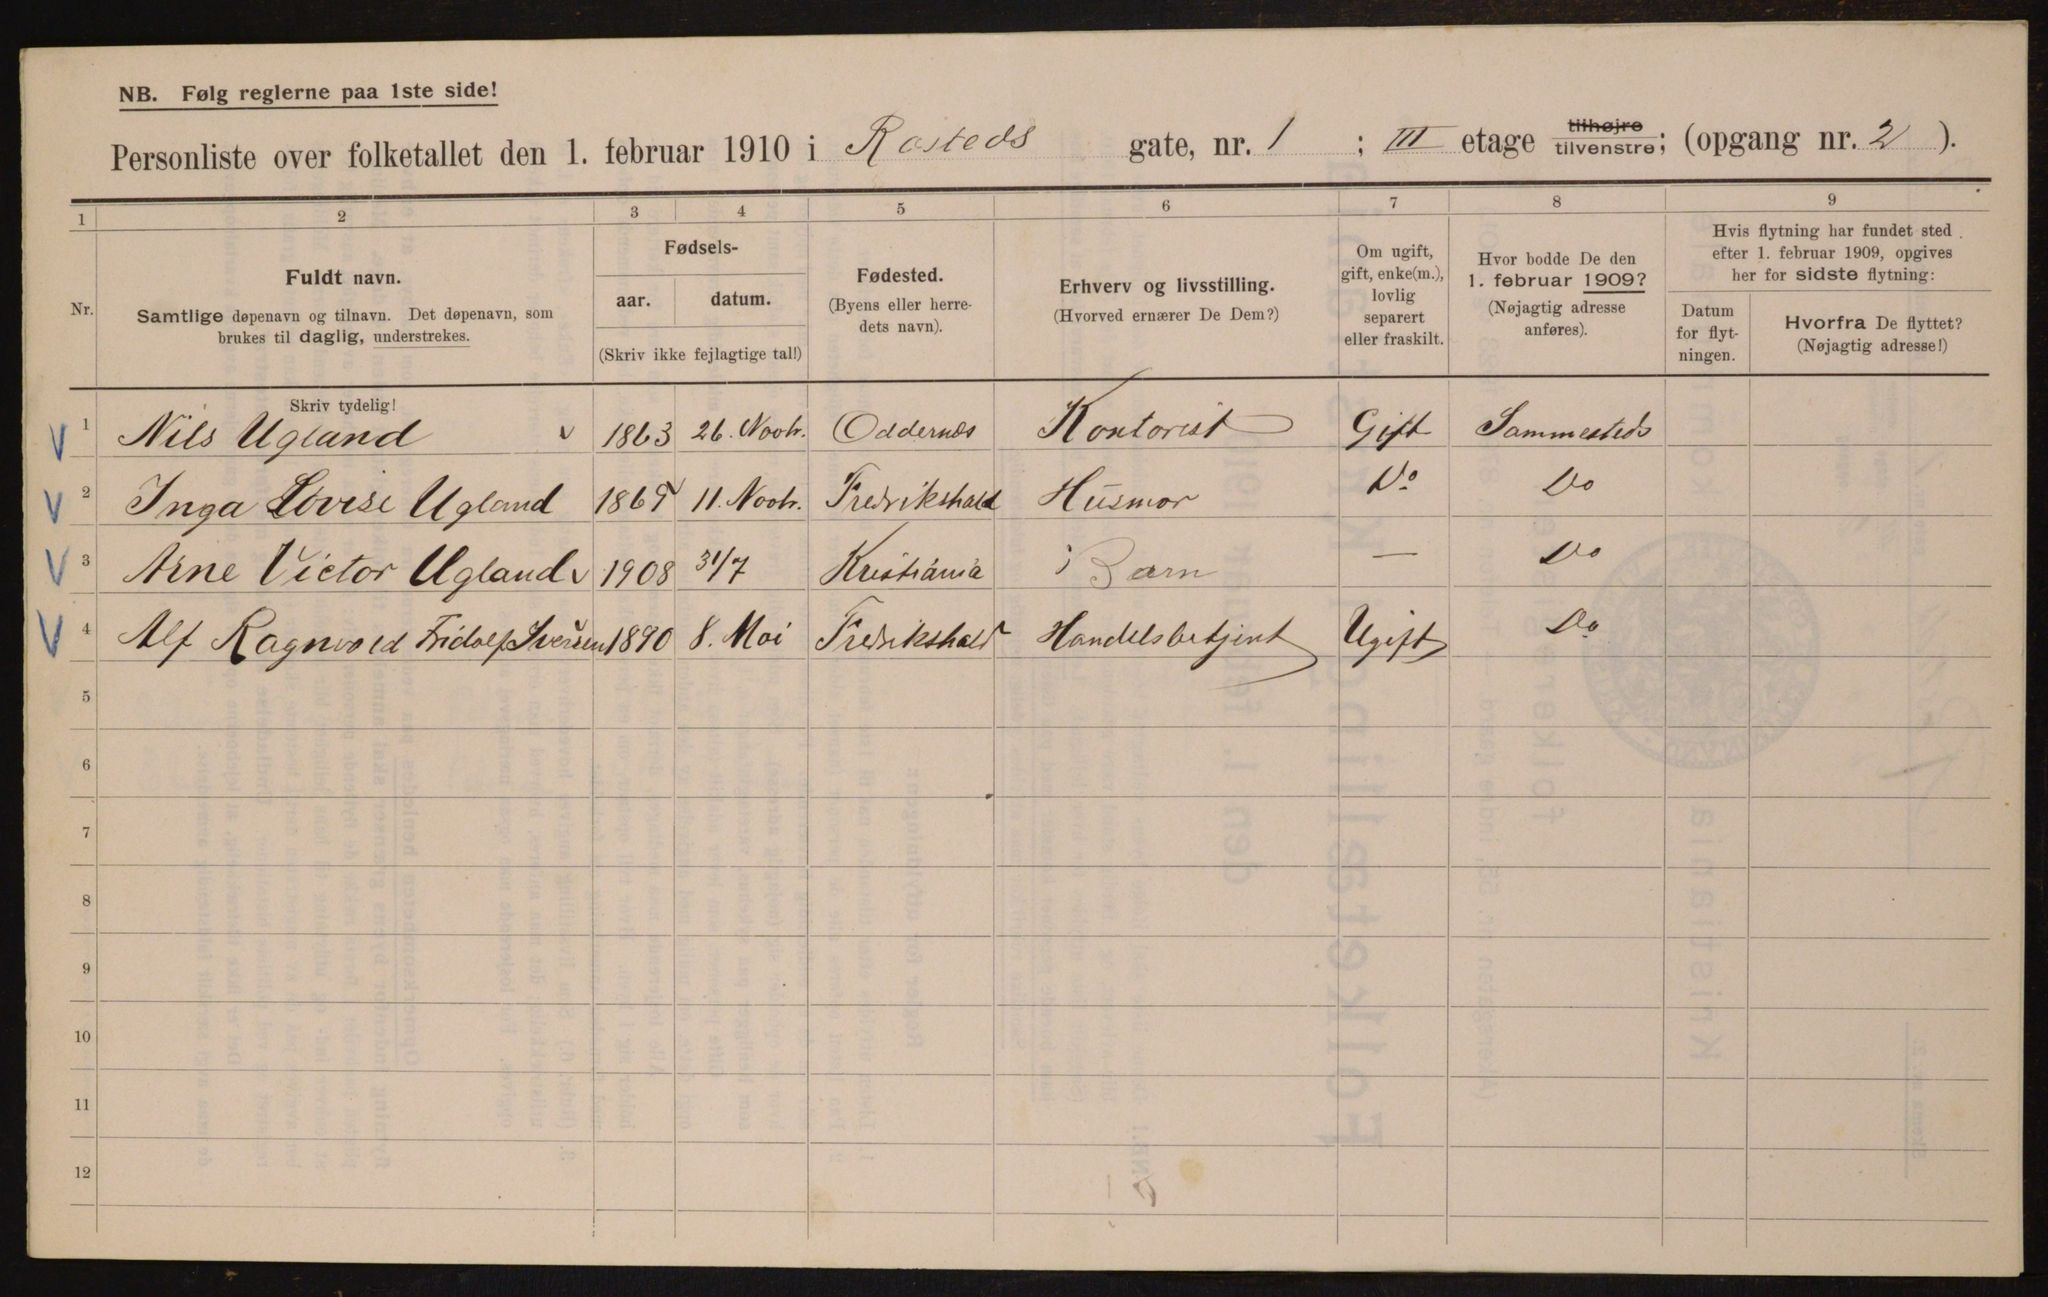 NB. Følg reglerne paa 1ste side!
Personliste over folketallet den 1. februar 1910 i Rosteds gate, nr. 1 ; III etage tilhøjre tilvenstre; (opgang nr. 2 ).
1 2 3 4 5 6 7 8 9
Nr.
Fuldt navn.
Samtlige døpenavn og tilnavn. Det døpenavn, som
brukes til daglig, understrekes.
Fødsels-
aar. datum.
(Skriv ikke fejlagtige tal!)
Fødested.
(Byens eller herre-
dets navn).
Erhverv og livsstilling.
(Hvorved ernærer De Dem?)
Om ugift,
gift, enke(m.),
lovlig
separert
eller fraskilt.
Hvor bodde De den
1. februar 1909?
(Nøjagtig adresse
anføres).
Hvis flytning har fundet sted
efter 1. februar 1909, opgives
her for sidste flytning:
Datum
for flyt-
ningen.
Hvorfra De flyttet?
(Nøjagtig adresse!)
Skriv tydelig!
1 Nils Ugland 1863 26. Novbr. Oddernæs Kontorist Gift Sammesteds
2 Inga Lovise Ugland 1869 11. Novbr. Fredrikshald Husmor Do Do
3 Arne Victor Ugland 1908 31/7 Kristiania Barn — Do
4 Alf Ragnvald Fridolf Iversen 1890 8. Mai Fredrikshald Handelsbetjent Ugift Do
5
6
7
8
9
10
11
12